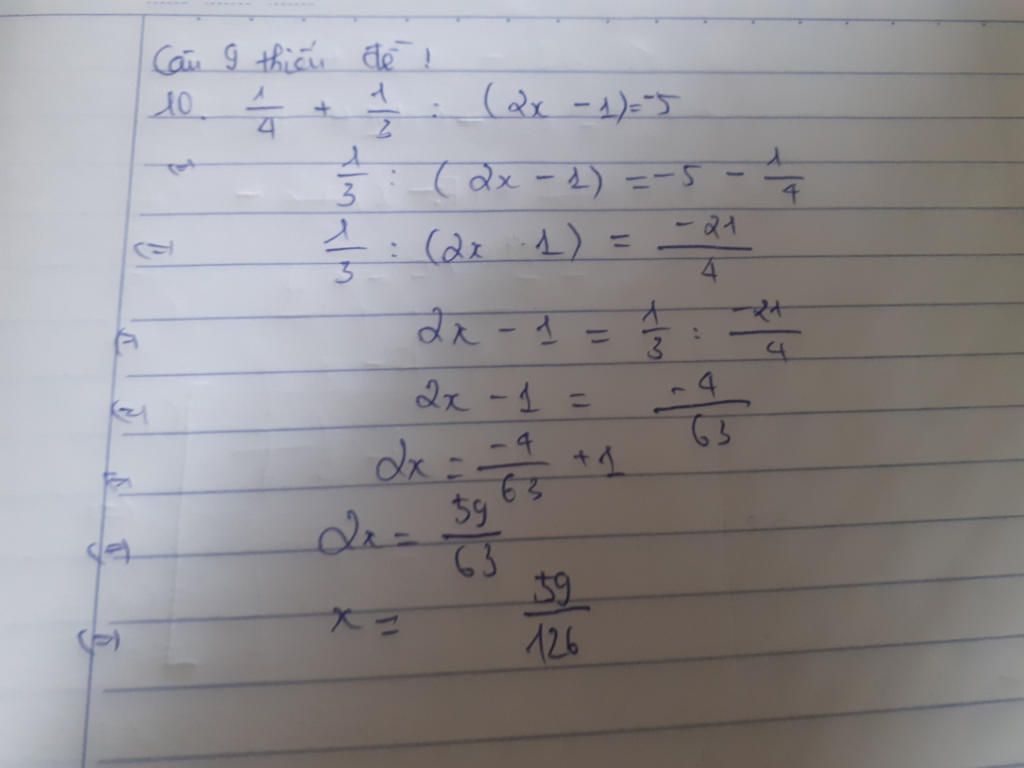 Câu 9 thiếu đề !
10. 1/4 + 1/3 : (2x - 1) = -5
(=) 1/3 : (2x - 1) = -5 - 1/4
(=) 1/3 : (2x - 1) = -21/4
(=) 2x - 1 = 1/3 : -21/4
(=) 2x - 1 = -4/63
(=) 2x = -4/63 + 1
(=) 2x = 59/63
(=) x = 59/126